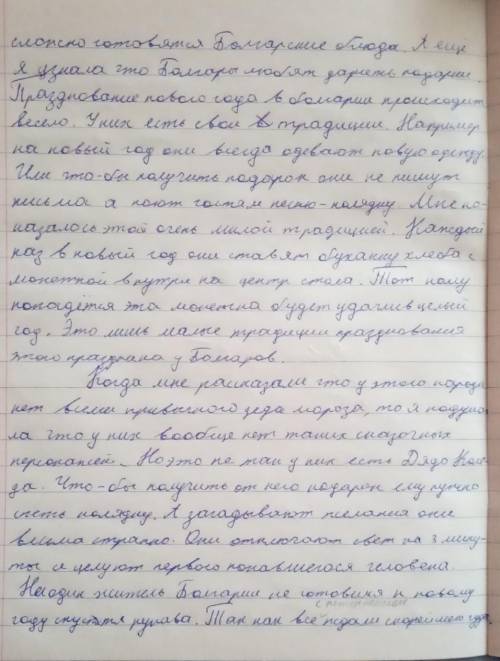 сложно готовятся Болгарские блюда. А ещё
я узнала что Болгары любят дарить подарки.
Празднование нового года в болгарии происходит
весело. У них есть свои традиции. Например
на новый год они всегда одевают новую одежду.
Или что-бы получить подарок они не пишут
письма а поют гостям песню-колядку. Мне по-
казалось этой очень милой традицией. Каждый
раз в новый год они ставят буханку хлеба с
монеткой внутри на центр стола. Тот кому
попадётся эта монетка будет удачлив целый
год. Это лишь малые традиции празднования
этого праздника у Болгаров.
Когда мне рассказали что у этого народа
нет всеми привычного деда мороза, то я подума-
ла что у них вообще нет таких сказочных
персонажей. Но это не так у них есть Дядо Коле-
да. Что-бы получить от него подарок ему нужно
спеть колядку. А загадывают желания они
весьма странно. Они отключают свет на 3 мину-
ты и целуют первого попавшегося человека.
Не один житель Болгарии не готовился к новому
году спустя рукава. Так как все ждали скорейшего